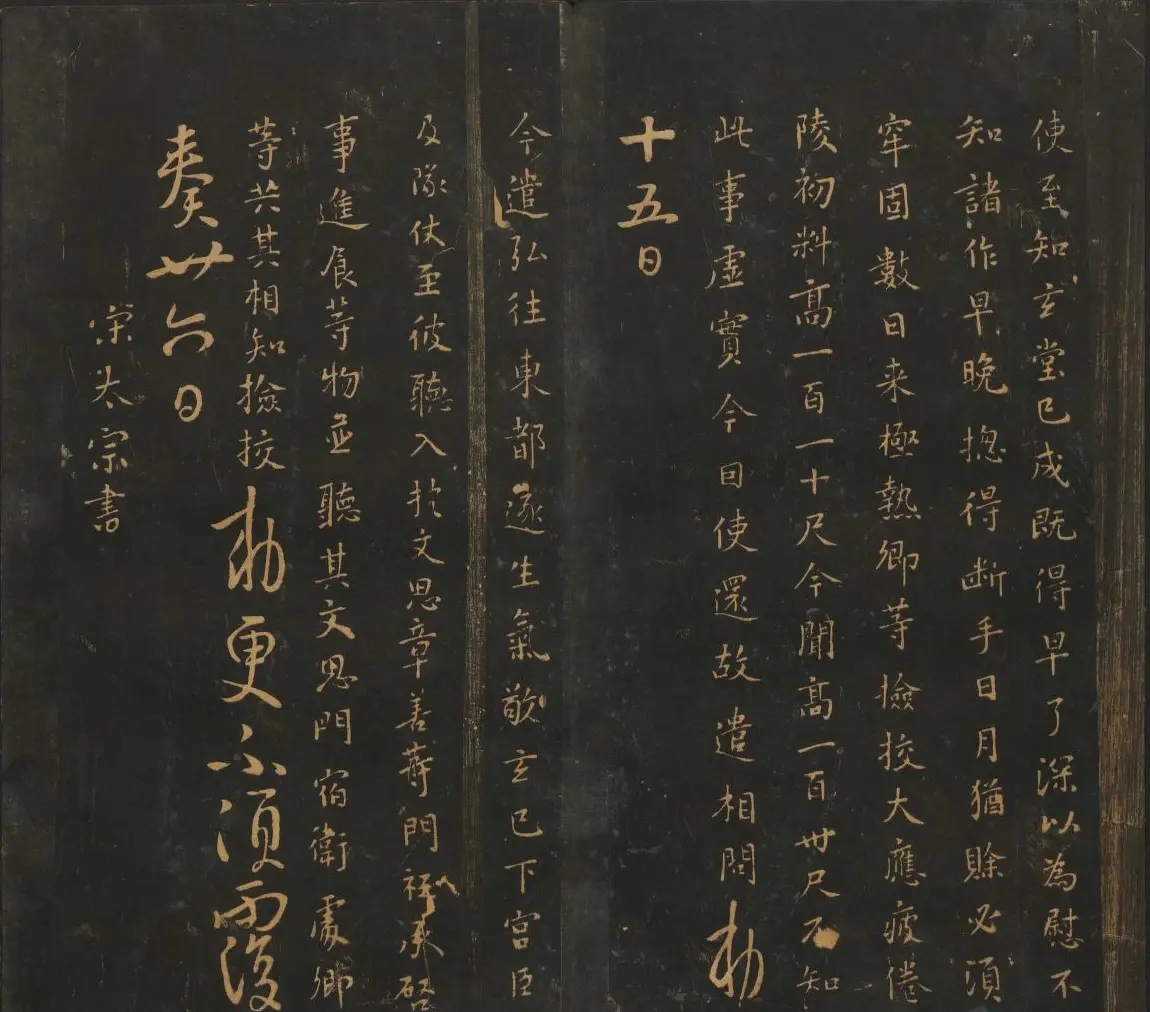 使至知玄堂已成既得早了深以為慰不
知諸作早晚揔得断手日月猶賒必須
牢固數日来極熱卿等撿挍大應疲倦
陵初料高一百一十尺今聞高一百卅尺不知
此事虛實今因使還故遣相問勅
十五日
今遣弘往東都遂生氣敬玄已下宫臣
及隊仗至彼聽入扵文思章善等門祇承啓
事進食等物並聽其文思門宿衛處卿
等共其相知撿挍勅更不須覆
奏廿六日
宋太宗書